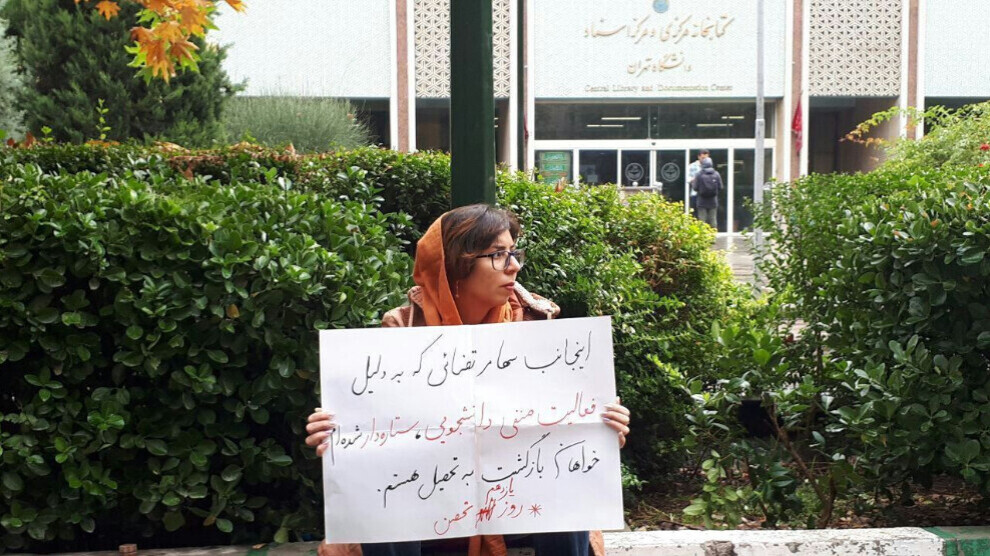 کتابخانه مرکزی و مرکز اسناد
دانشگاه تهران
Central Library and Documentation Center
اینجانب سها مرتضائی که به دلیل
فعالیت صنفی دانشجویی، ستاره‌دار شده‌ام
خواهان بازگشت به تحصیل هستم.
یازدهم
* روز تحصن